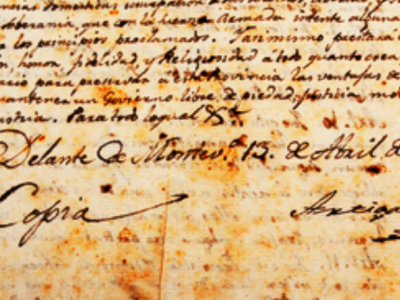 Soberania, que con la fuerza armada intente alguna
los principios proclamados. Tanimismo prestará
honor, fidelidad y Religiosidad a todo quanto crea
para presentar a esta Provincia las ventajas de
mantener un Govierno libre, de piedad, justicia, mo
ustria. Para todo lo qual &ª
Delante de Montevº 13. de Abril de
Copia Artiga